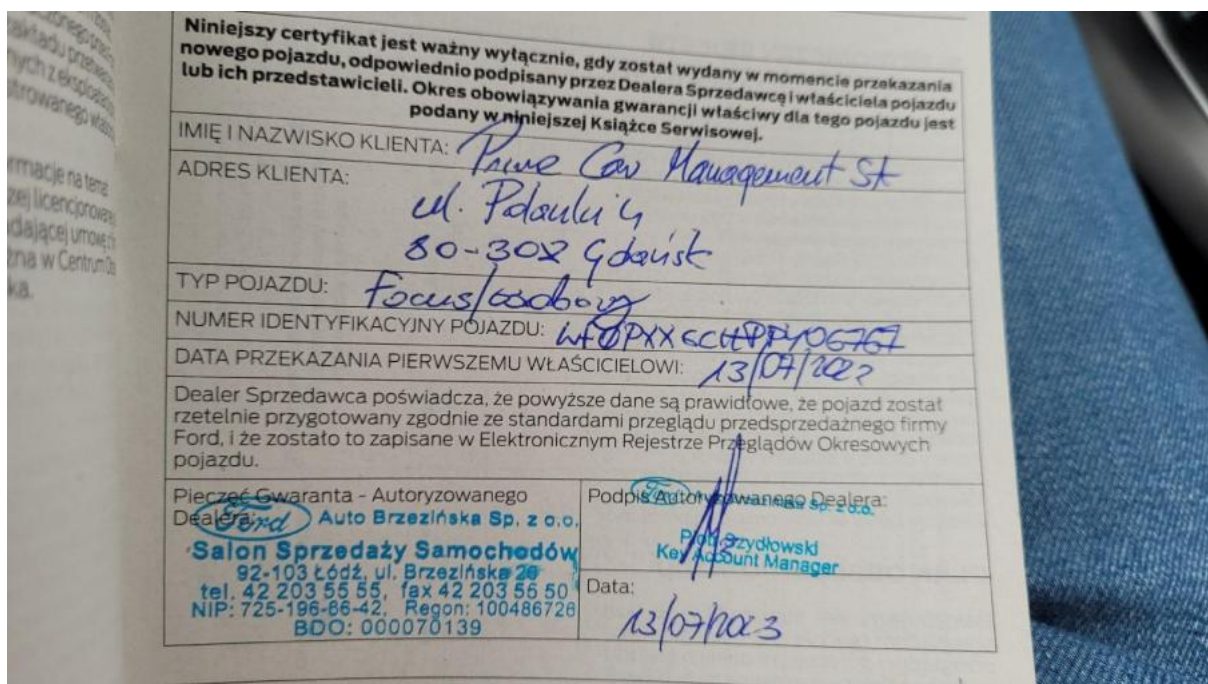 Niniejszy certyfikat jest ważny wyłącznie, gdy został wydany w momencie przekazania
nowego pojazdu, odpowiednio podpisany przez Dealera Sprzedawcę i właściciela pojazdu
lub ich przedstawicieli. Okres obowiązywania gwarancji właściwy dla tego pojazdu jest
podany w niniejszej Książce Serwisowej.
IMIĘ I NAZWISKO KLIENTA: Prime Car Management SA
ADRES KLIENTA:
ul. Polanki 4
80-308 Gdańsk
TYP POJAZDU: Focus/osobowy
NUMER IDENTYFIKACYJNY POJAZDU:
DATA PRZEKAZANIA PIERWSZEMU WŁAŚCICIELOWI: 13/07/2023
Dealer Sprzedawca poświadcza, że powyższe dane są prawidłowe, że pojazd został
rzetelnie przygotowany zgodnie ze standardami przeglądu przedsprzedażnego firmy
Ford, i że zostało to zapisane w Elektronicznym Rejestrze Przeglądów Okresowych
pojazdu.
Pieczęć Gwaranta - Autoryzowanego
Dealera:
Ford Auto Brzezińska Sp. z o.o.
Salon Sprzedaży Samochodów
92-103 Łódź, ul. Brzezińska 26
tel. 42 203 55 55, fax 42 203 55 50
NIP: 725-196-86-42, Regon: 100486726
BDO: 000070139
Podpis Autoryzowanego Dealera:
Ford Sp. z o.o.
Piotr Szydłowski
Key Account Manager
Data:
13/07/2023